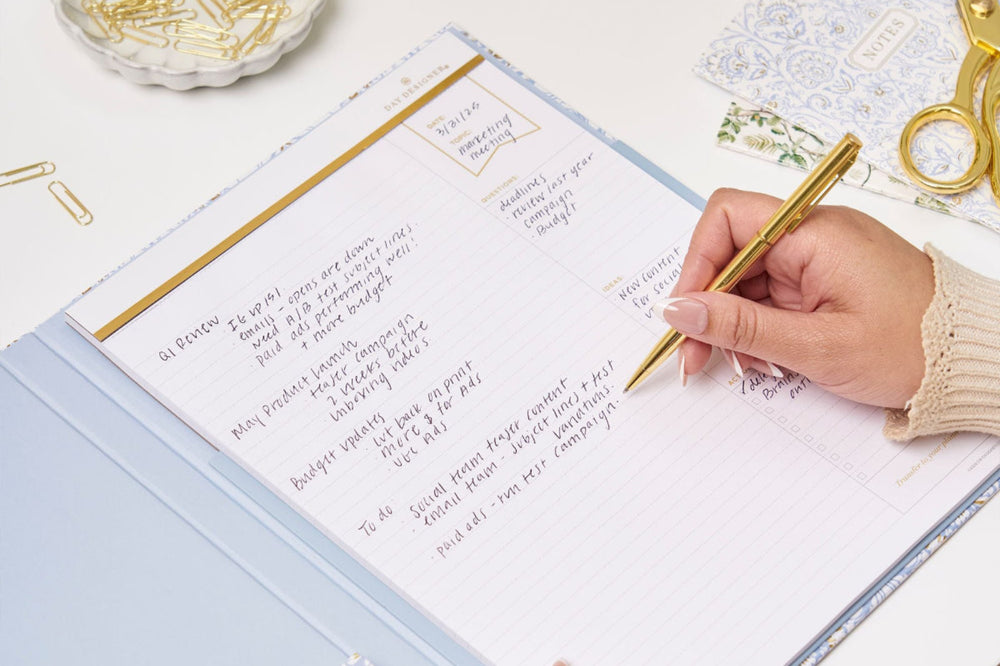 DAY DESIGNER®
DATE:
3/21/26
TOPIC:
marketing
meeting
QUESTIONS:
deadlines
· review last year
campaign
· Budget
IDEAS:
New content
for social
Q1 Review
IG up 15%!
· emails - opens are down
need A/B test subject lines.
· paid ads performing well!
+ more budget
May Product Launch
· teaser campaign
2 weeks before
· unboxing videos
Budget updates
· cut back on print
· more $ for Ads
To do
· Social team teaser content
· email team - subject lines + test
variations.
· paid ads - run test campaign
Transfer to your
NOTES